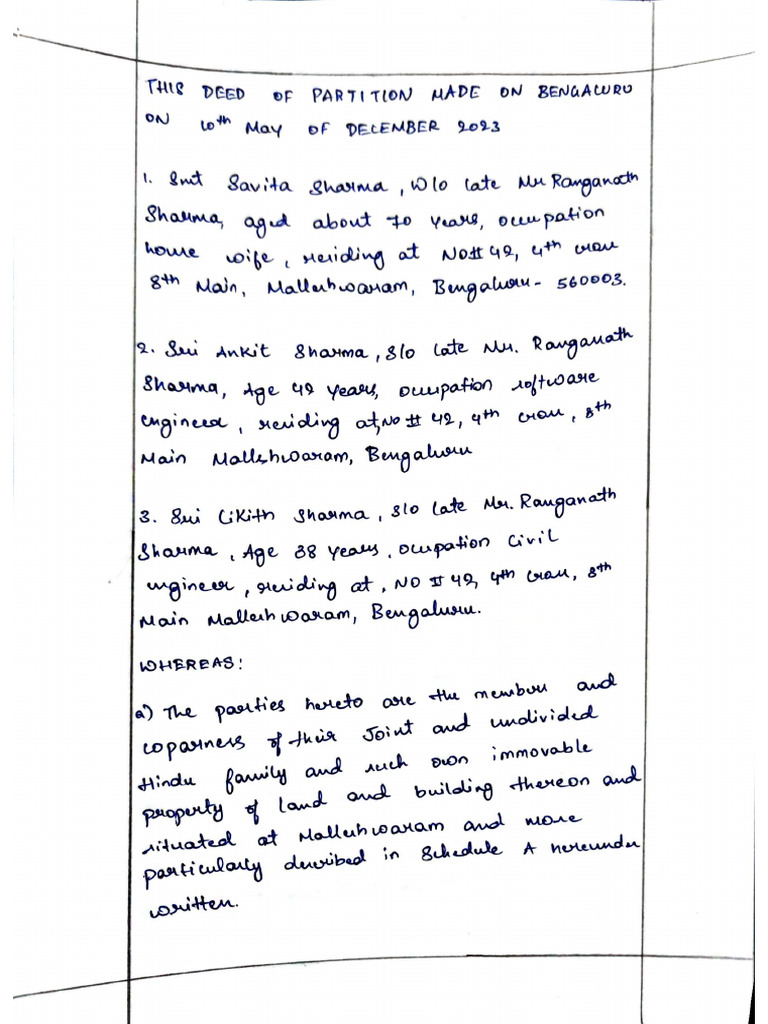 THIS DEED OF PARTITION MADE ON BENGALURU
ON 10th May OF DECEMBER 2023
1. Smt Savita Sharma, W/o late Mr Ranganath
Sharma, aged about 70 years, occupation
house wife, residing at NO# 42, 4th cross
8th Main, Malleshwaram, Bengaluru - 560003.
2. Sri Ankit Sharma, S/o late Mr. Ranganath
Sharma, Age 42 years, occupation software
engineer, residing at, No # 42, 4th cross, 8th
Main Malleshwaram, Bengaluru
3. Sri Likith Sharma, S/o late Mr. Ranganath
Sharma, Age 38 years, occupation Civil
engineer, residing at, NO # 42, 4th cross, 8th
Main Malleshwaram, Bengaluru.
WHEREAS:
a) The parties hereto are the members and
coparners of their Joint and undivided
Hindu family and such own immovable
property of land and building thereon and
situated at Malleshwaram and more
particularly described in Schedule A hereunder
written.